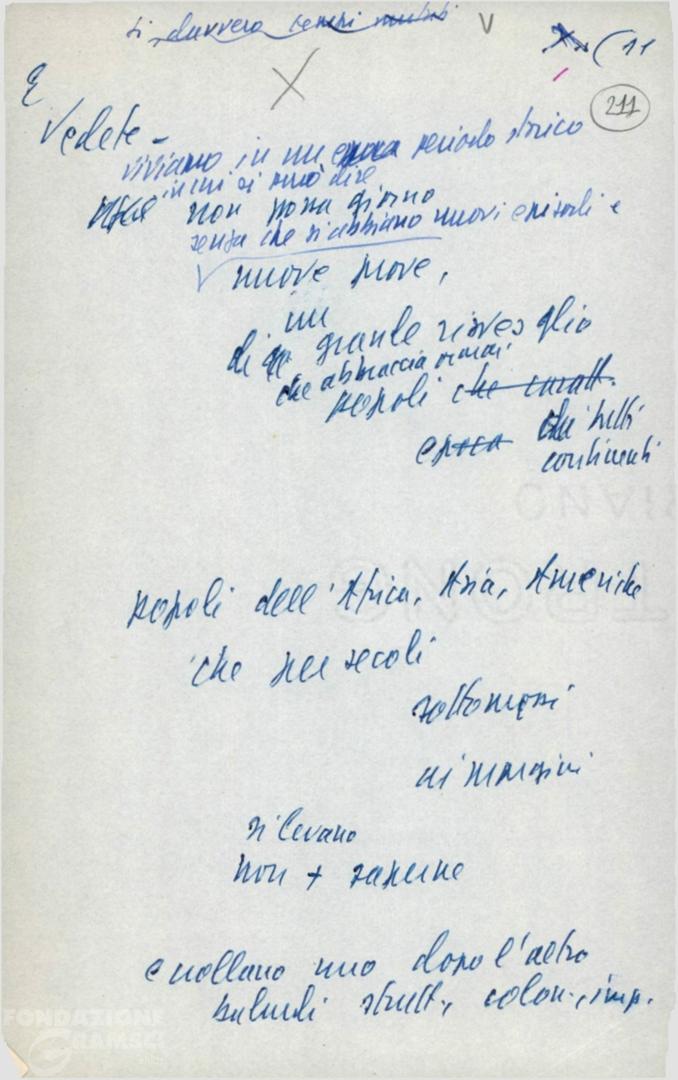 Sì, davvero tempi mutati V
X (11
X
211
E
Vedete -
viviamo in un epoca periodo storico
in cui si può dire
non passa giorno
senza che si abbiano nuovi episodi e
V nuove prove,
un
di grande risveglio
che abbraccia ormai
popoli che caratt.
epoca di tutti
continenti
popoli dell'Africa, Asia, Americhe
che per secoli
sottomessi
ai margini
si levano
non + saperne
crollano uno dopo l'altro
baluardi strutt., colon., imp.
FONDAZIONE
GRAMSCI